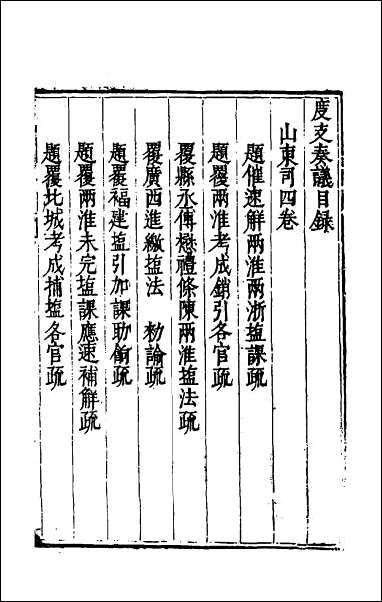 度支奏議目録
山東司四卷
題催速解兩淮兩浙塩課疏
題覆兩淮考成銷引各官疏
覆縣丞傅懋禮條陳兩淮塩法疏
覆廣西進繳塩法　勑諭疏
題覆福建塩引加課助餉疏
題覆兩淮未完塩課應速補解疏
題覆北城考成捕塩各官疏